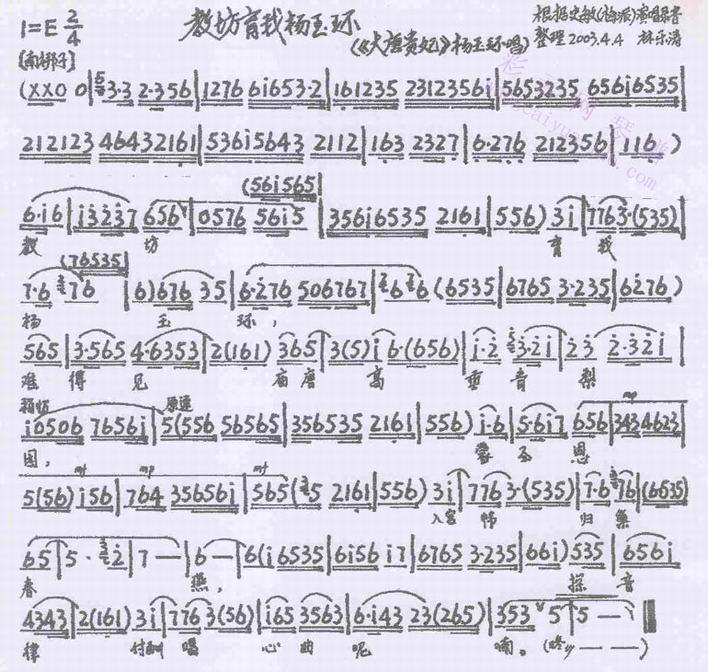 教坊育我杨玉环
1=E 2/4
(《大唐贵妃》杨玉环唱)
根据史敏(梅派)演唱录音
整理 2003.4.4 林乐涛
[南梆子]
(XX0 0|3·3 2·356|1276 61653·2|161235 2312356i|5653235 656i6535|
212123 46432161|536i5643 2112|163 2327|6·276 212356|116)
(56i565|
6·i6|i3237 656|0576 56i5|356i6535 2161|556)3i|7763·(535)|
教 坊 育 我
(76535|
7·6 76|6)676 35|6·276 506767|666(6535|6765 3·235|6i276)
杨 玉 环,
565|3·565 4·6353|2(161) 365|3(5)i 6·(656)|i·2 3·2i|23 2·32i|
难 得 见 南唐 高 垂 音 梨
稍慢 原速 mp
i0506 7656i|5(556 56565|356535 2161|556)i·6|5·6i7 656|3434623|
园, 蒙 圣 恩
mf mp mf
5(56)i56|764 35656i|565(35 2161|556)3i|776 3·(535)|7·6 76|(6535)
入宫 帏 归 集
65|5·32|7—|6—|6(i6535|6i56 i7|6765 3·235|66i)535|656i
春 燕, 探 音
4343|2(161)3i|7763(56)|i65 3563|6·i43 23(265)|353 5|5—|
律 付酬 唱 心 曲 呢 喃。